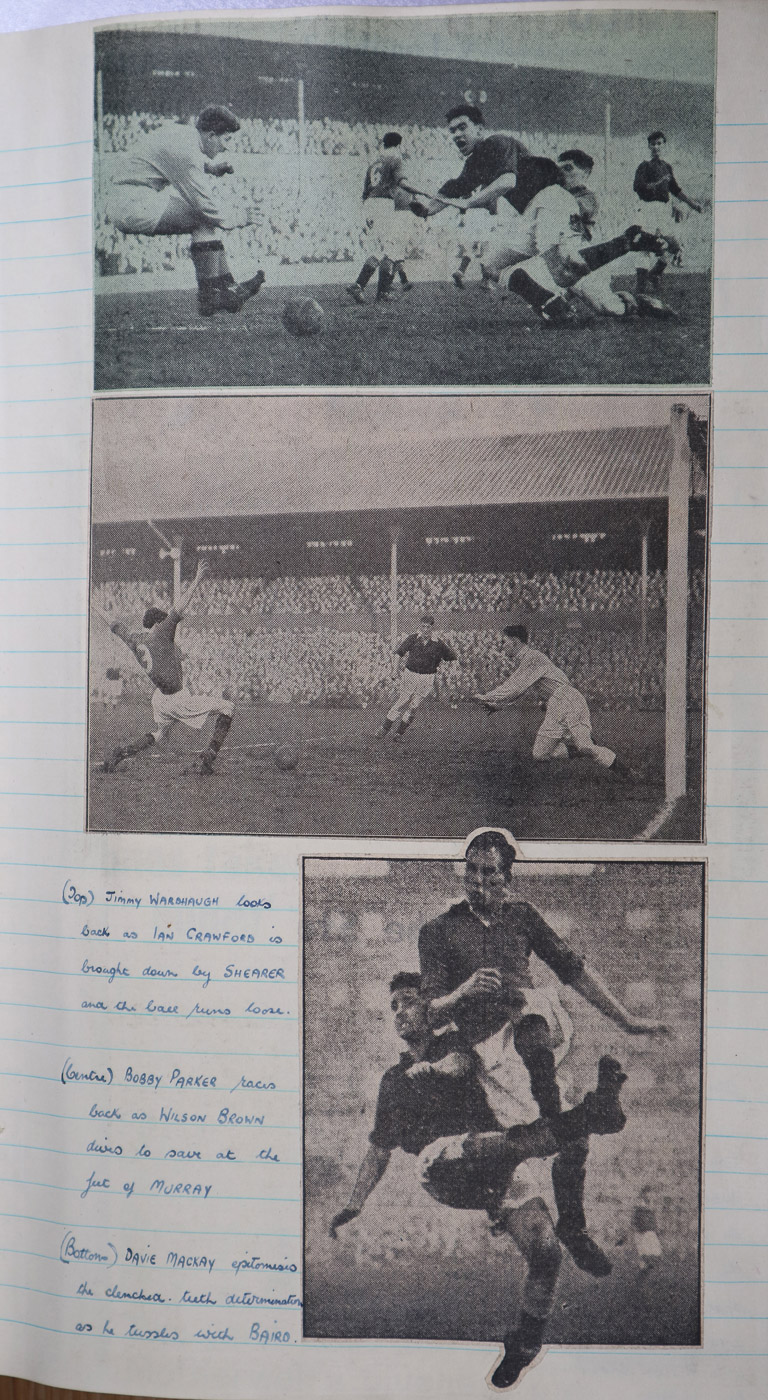 6
3
(Top) Jimmy WARDHAUGH looks
back as IAN CRAWFORD is
brought down by SHEARER
and the ball runs loose.
(Centre) BOBBY PARKER races
back as WILSON BROWN
dives to save at the
feet of MURRAY
(Bottom) DAVIE MACKAY epitomises
the clenched-teeth determination
as he tussles with BAIRD.